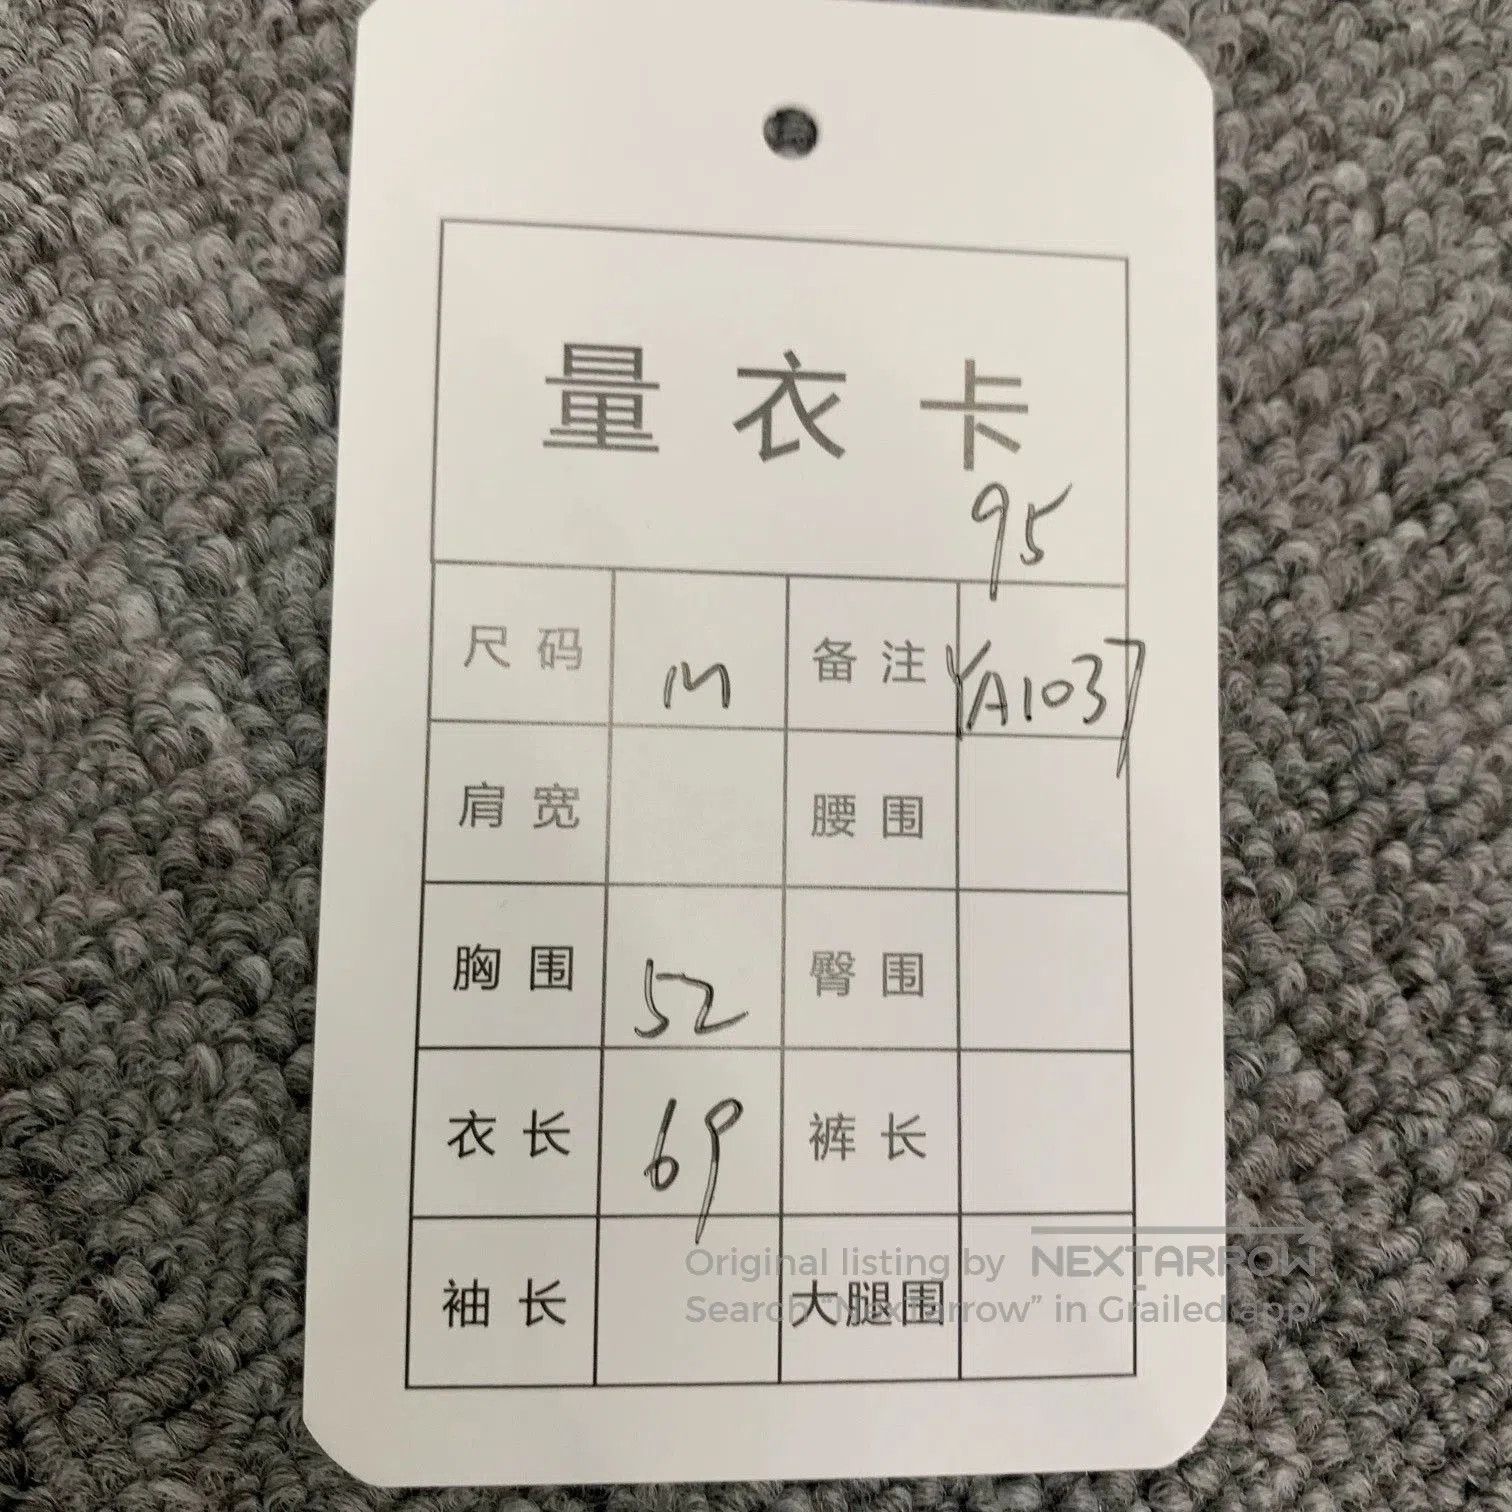 量衣卡
95
尺码 M 备注 YA1037
肩宽 腰围
胸围 52 臀围
衣长 69 裤长
袖长 大腿围
Original listing by NEXTARROW
Search "NextArrow" in Grailed app